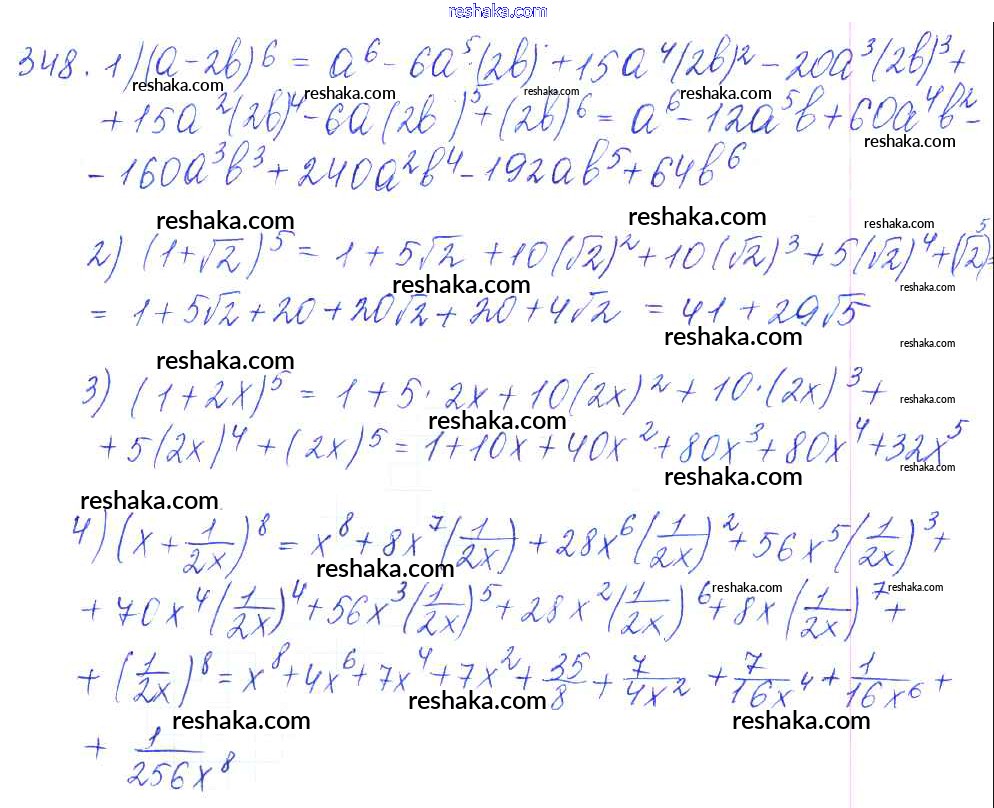 reshaka.com
348. 1) (a-2b)^6 = a^6 - 6a^5·(2b) + 15a^4(2b)^2 - 20a^3(2b)^3 +
reshaka.com reshaka.com reshaka.com reshaka.com
+ 15a^2(2b)^4 - 6a(2b)^5 + (2b)^6 = a^6 - 12a^5b + 60a^4b^2 -
reshaka.com
- 160a^3b^3 + 240a^2b^4 - 192ab^5 + 64b^6
reshaka.com reshaka.com reshaka.com
2) (1+√2)^5 = 1 + 5√2 + 10(√2)^2 + 10(√2)^3 + 5(√2)^4 + (√2)^5 =
reshaka.com reshaka.com
= 1 + 5√2 + 20 + 20√2 + 20 + 4√2 = 41 + 29√5
reshaka.com reshaka.com
reshaka.com
3) (1+2x)^5 = 1 + 5·2x + 10(2x)^2 + 10·(2x)^3 +
reshaka.com reshaka.com
+ 5(2x)^4 + (2x)^5 = 1 + 10x + 40x^2 + 80x^3 + 80x^4 + 32x^5
reshaka.com reshaka.com
reshaka.com
4) (x + 1/2x)^8 = x^8 + 8x^7(1/2x) + 28x^6(1/2x)^2 + 56x^5(1/2x)^3 +
reshaka.com reshaka.com
+ 70x^4(1/2x)^4 + 56x^3(1/2x)^5 + 28x^2(1/2x)^6 + 8x(1/2x)^7 +
reshaka.com reshaka.com
+ (1/2x)^8 = x^8 + 4x^6 + 7x^4 + 7x^2 + 35/8 + 7/4x^2 + 7/16x^4 + 1/16x^6 +
reshaka.com reshaka.com reshaka.com
+ 1/256x^8